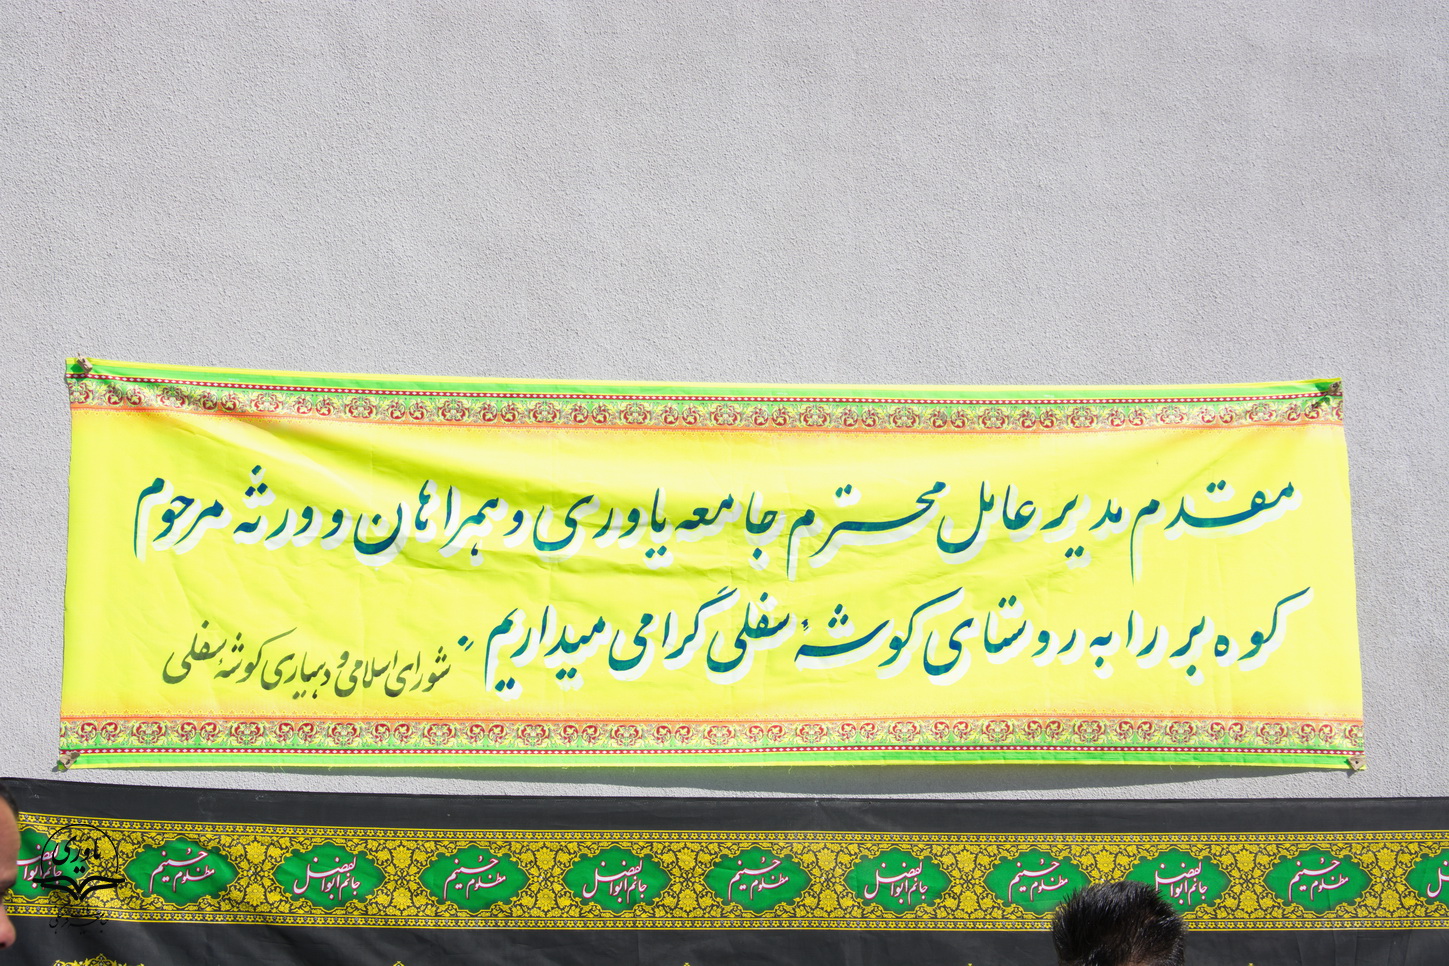 مقدم مدیر عامل محترم جامعه یاوری و همراهان و ورثه مرحوم
کوه بر را به روستای کوشهٔ سفلی گرامی میداریم.
شورای اسلامی و دهیاری کوشهٔ سفلی
جانم ابوالفضل
مظلوم حسینم
جانم ابوالفضل
مظلوم حسینم
جانم ابوالفضل
مظلوم حسینم
جانم ابوالفضل
مظلوم حسینم
جانم ابوالفضل
مظلوم حسینم
یاوری